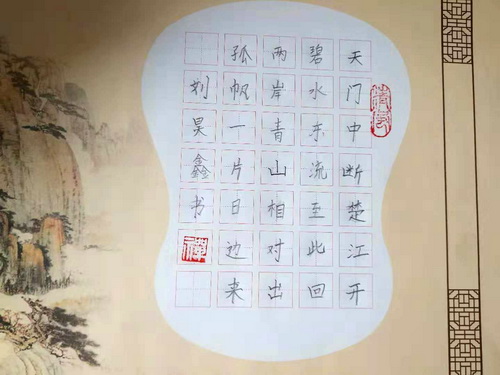 天门中断楚江开
碧水东流至此回
两岸青山相对出
孤帆一片日边来
刘昊鑫书